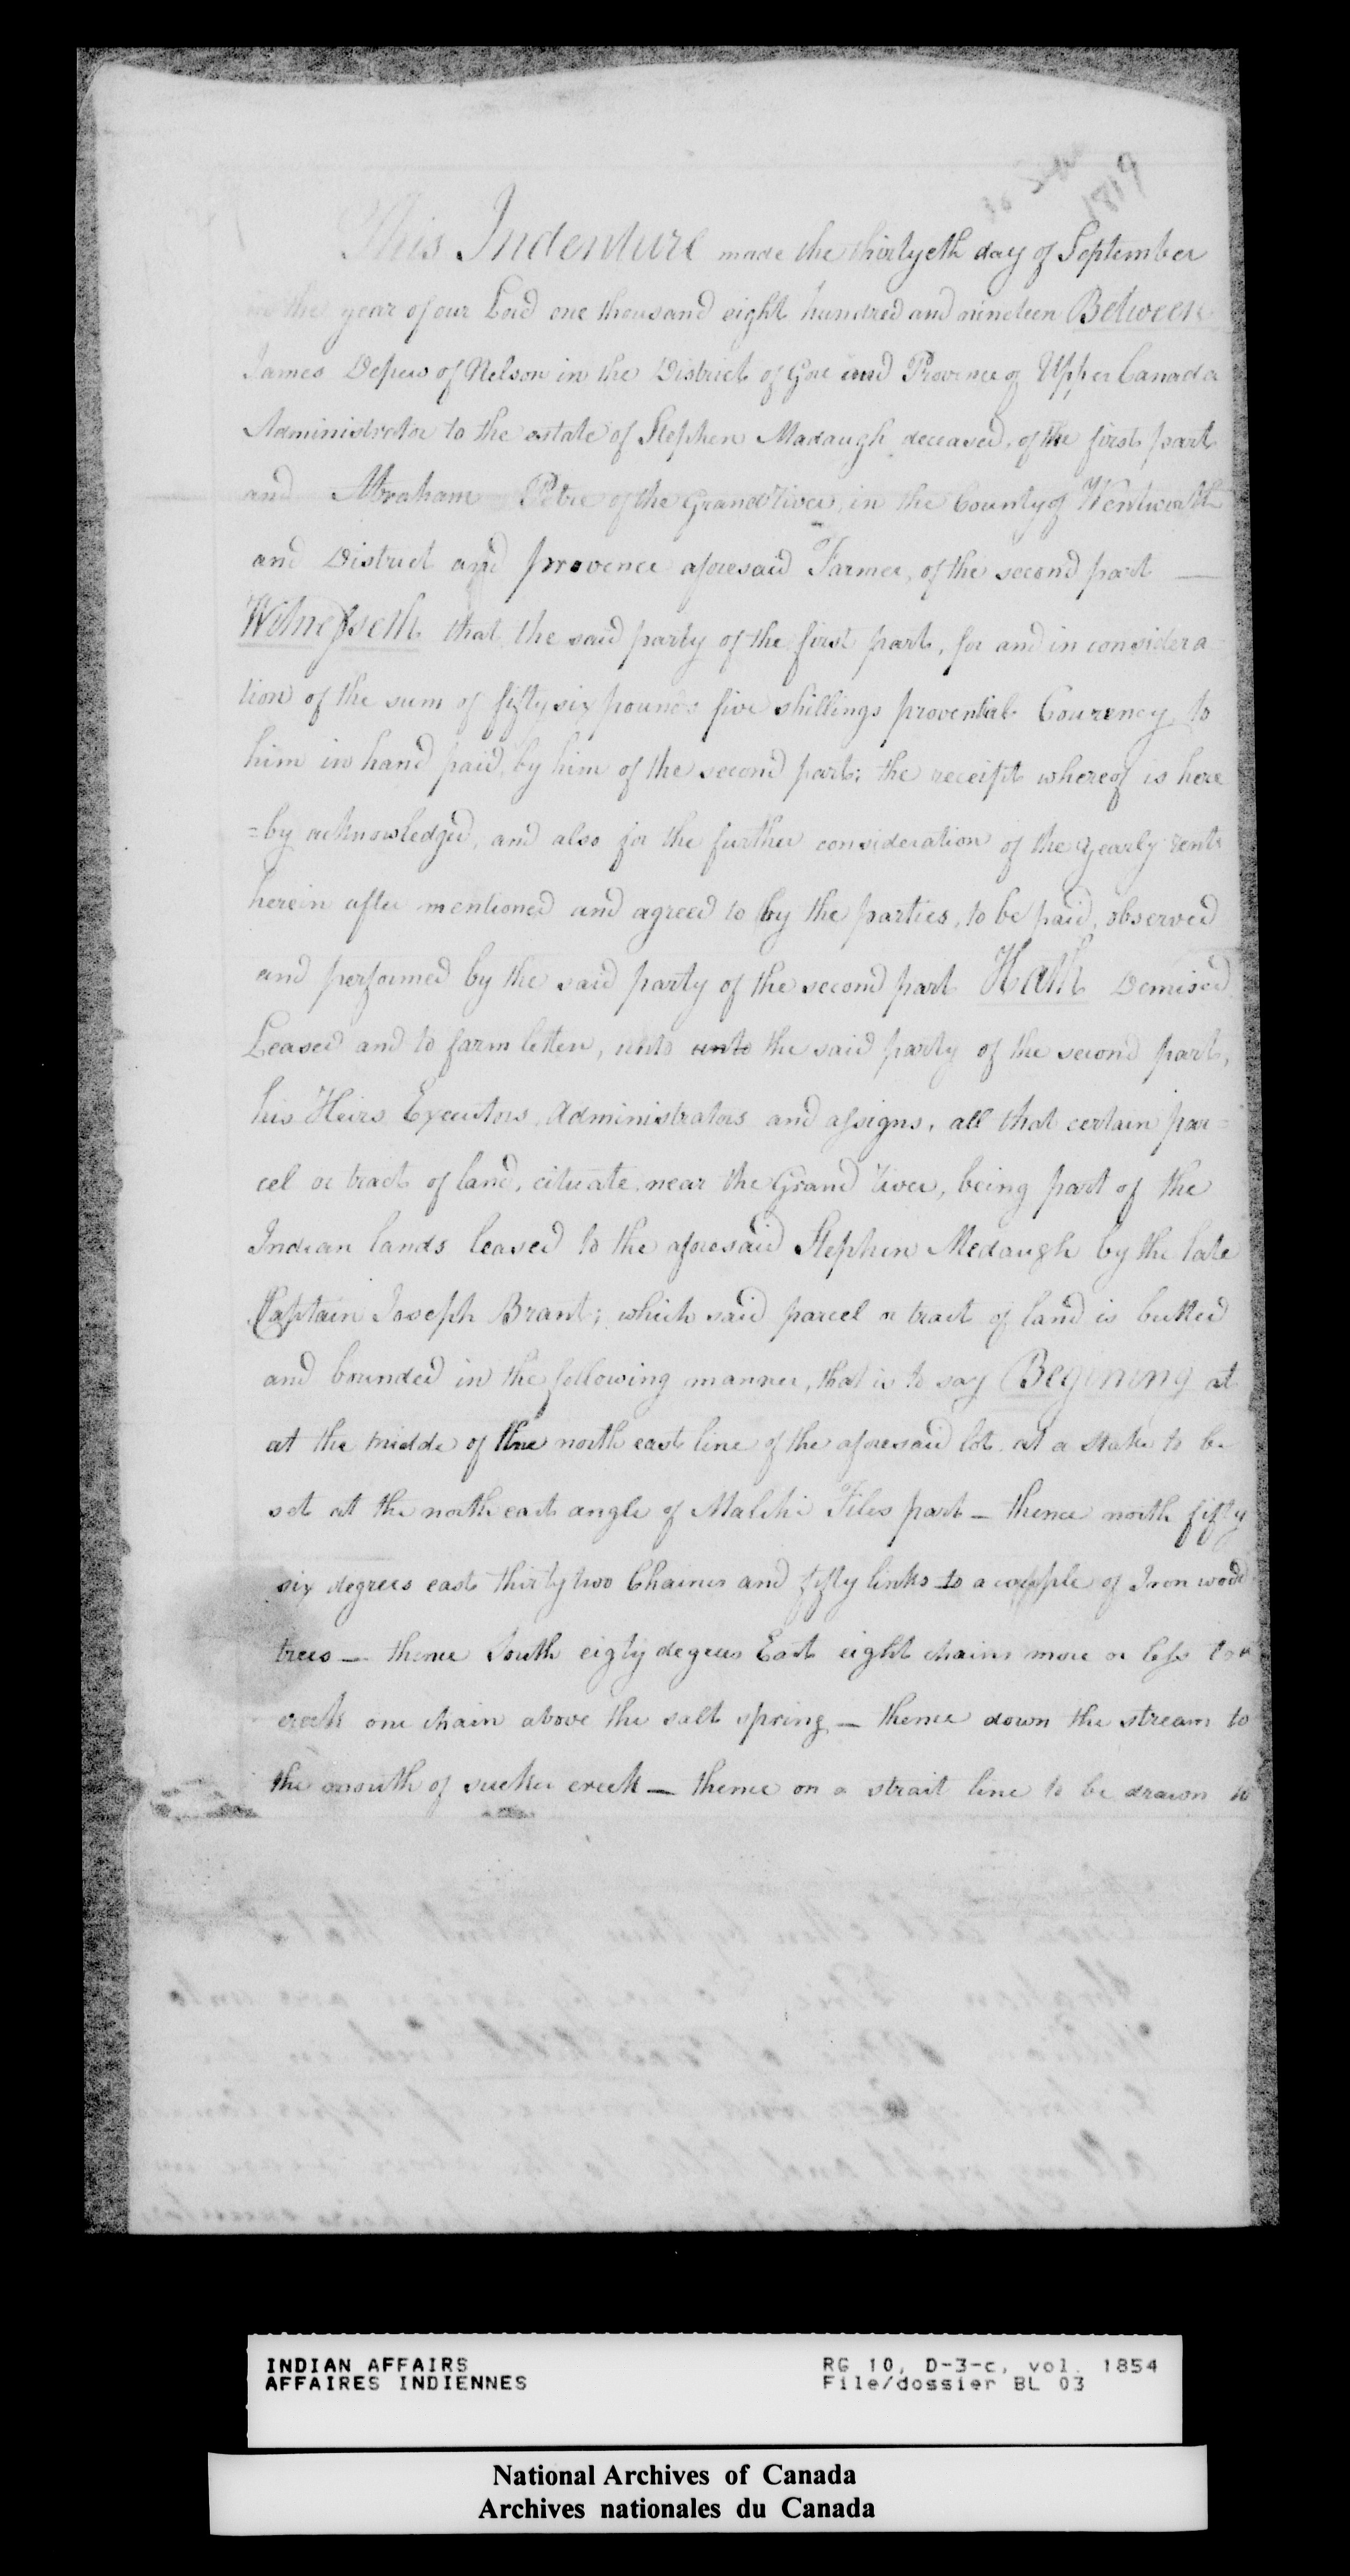 1819
This Indenture made the thirtyeth day of September
in the year of our Lord one thousand eight hundred and nineteen Between
James Depew of Nelson in the District of Gore and Province of Upper Canada
Administrator to the estate of Stephen Madaugh deceased, of the first part
and Abraham Petre of the Grand River, in the County of Wentworth
and District and provence aforesaid Farmer, of the second part —
Witnesseth that the said party of the first part, for and in considera-
tion of the sum of fifty six pounds five shillings provential Courency to
him in hand paid, by him of the second part; the receipt whereof is here
=by acknowledged, and also for the further consideration of the yearly rents
herein after mentioned and agreed to by the parties, to be paid, observed
and performed by the said party of the second part Hath Demised
Leased and to farm letten, unto unto the said party of the second part,
his Heirs Executors Administrators and assigns, all that certain par=
cel or tract of land, cituate near the Grand River, being part of the
Indian lands leased to the aforesaid Stephen Medaugh by the late
Captain Joseph Brant; which said parcel or tract of land is butted
and bounded in the following manner, that is to say Begining at
at the midde of the north east line of the aforesaid lot at a stake to be
set at the north east angle of Malchi Files part — thence north fifty
six degrees east thirty two Chains and fifty links to a copple of Iron wood
trees — thence South eigty degrees East eight chains more or less to a
creek one chain above the salt spring — thence down the stream to
the mouth of sucker creek — thence on a strait line to be drawn to
INDIAN AFFAIRS RG 10, D-3-c, vol. 1854
AFFAIRES INDIENNES File/dossier BL 03
National Archives of Canada
Archives nationales du Canada